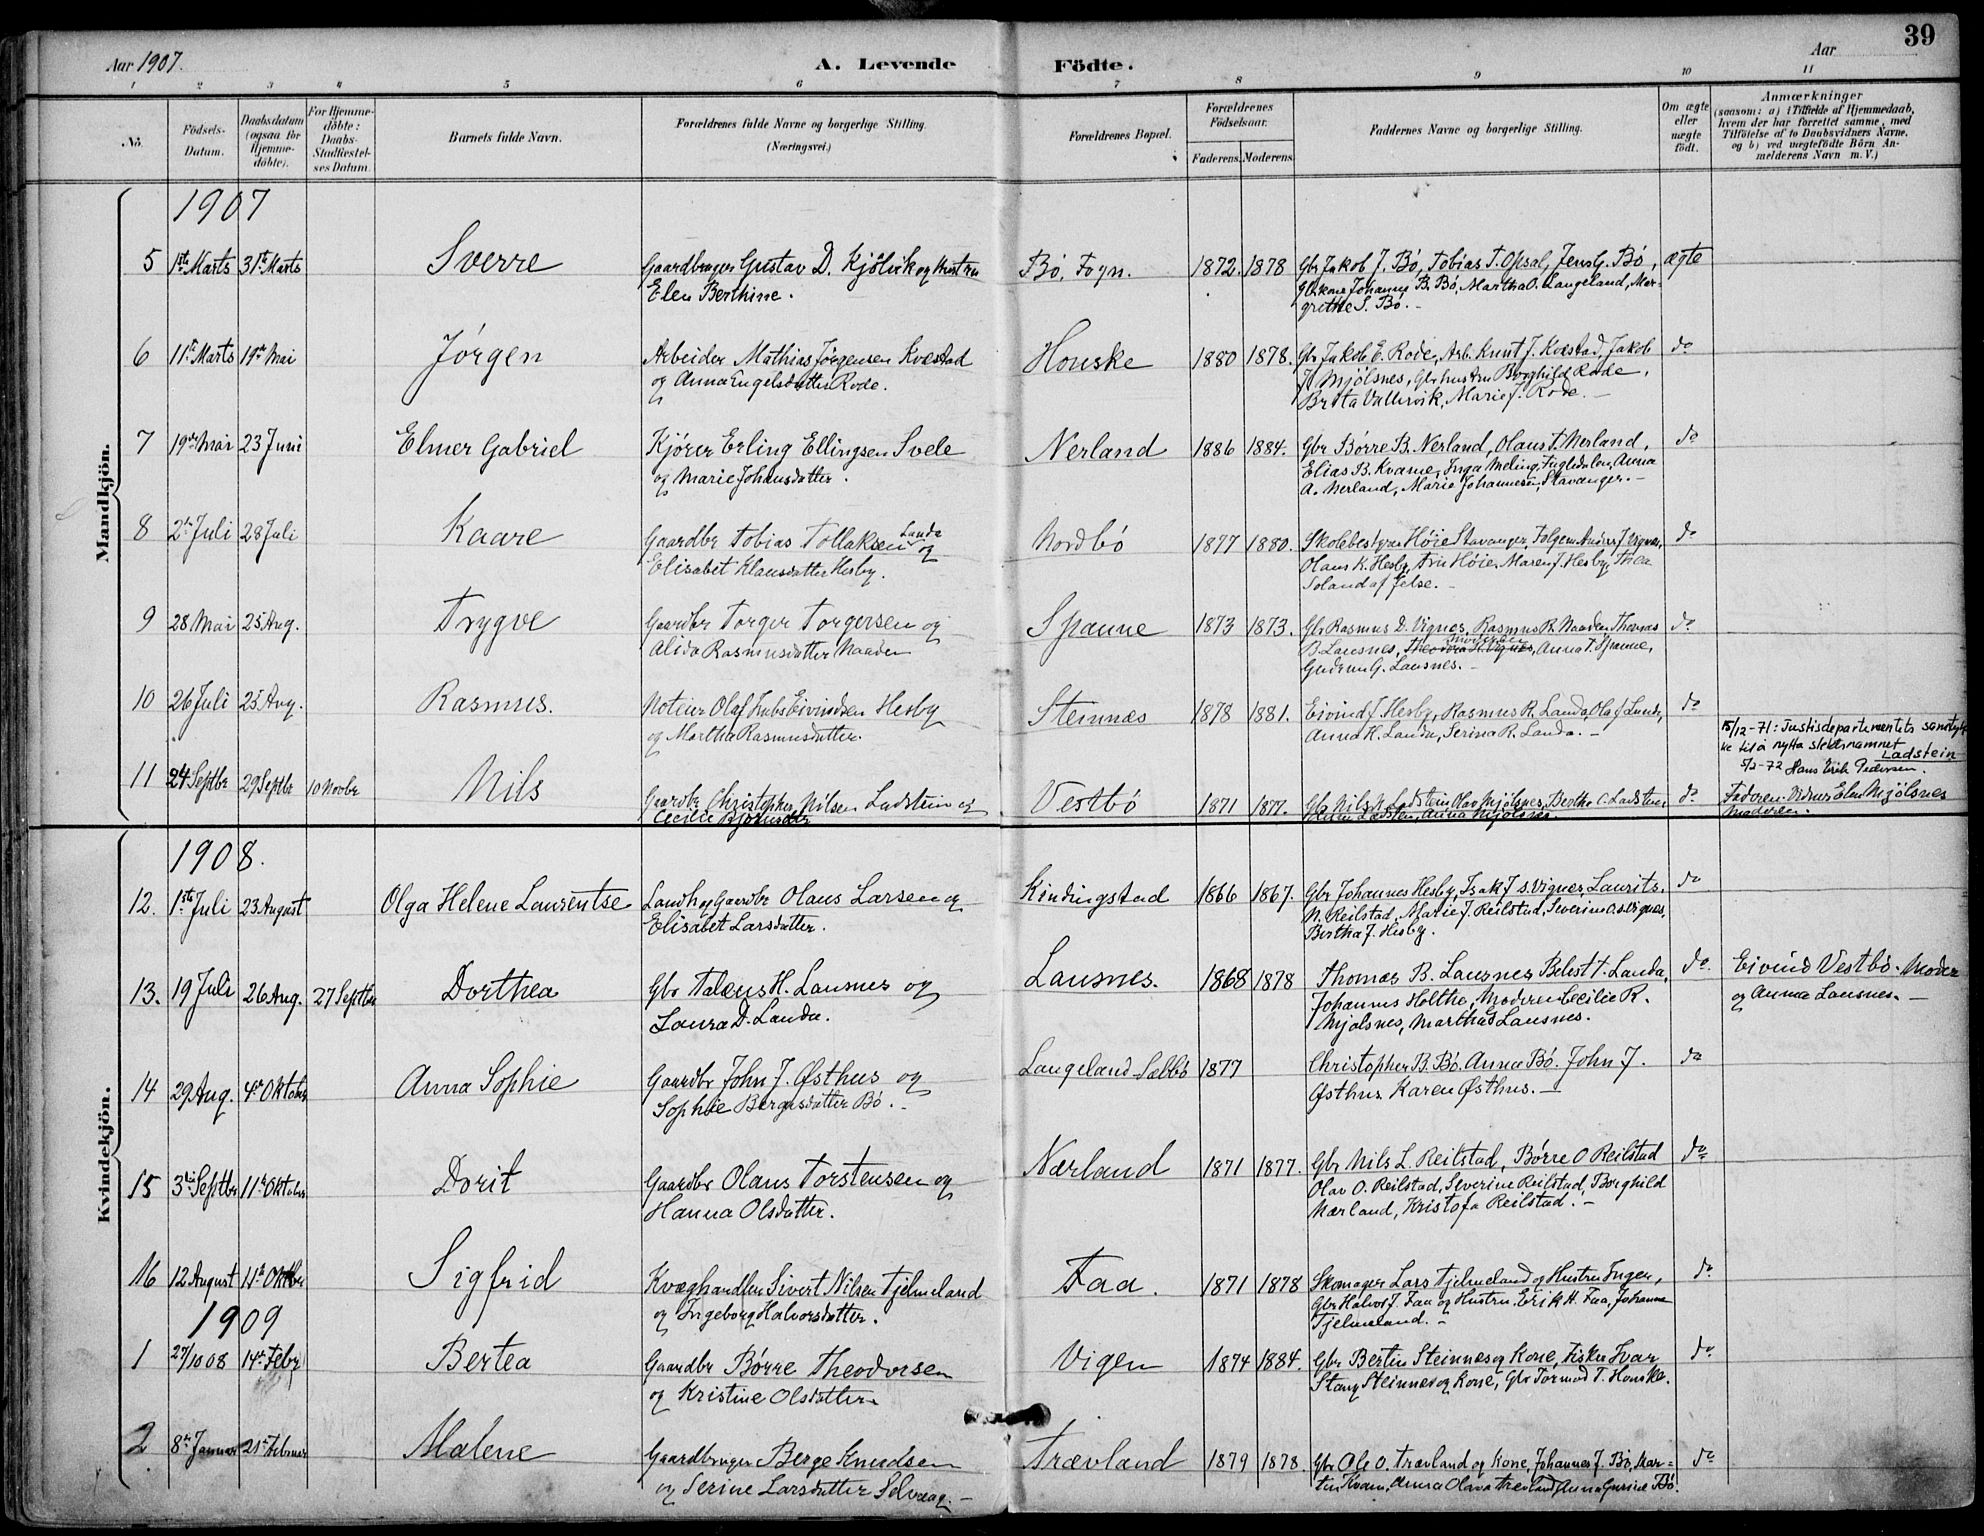 Aar 1907.
A. Levende Födte.
Aar
39
1 2 3 4 5 6 7 8 9 10 11
No.
Födsels-Datum.
Daabsdatum (ogsaa for Hjemme-döbte).
For Hjemme-döbte: Daabs-Stadfæstel-ses Datum.
Barnets fulde Navn.
Forældrenes fulde Navne og borgerlige Stilling. (Næringsvei.)
Forældrenes Bopæl.
Forældrenes Födselsaar.
Faderens. Moderens.
Faddernes Navne og borgerlige Stilling.
Om ægte eller uægte födt.
Anmærkninger
(saasom: a) i Tilfælde af Hjemmedaab, hvem der har forrettet samme, med Tilföielse af to Daabsvidners Navne, og b) ved uegtefödte Börn An-melderens Navn m. V.)
Mandkjön.
1907
5 1ste Marts 31te Marts Sverre Gaardbruger Gustav D. Kjölvik og Hustru Bö, Fogn. 1872. 1878 Gbr Jakob J. Bö, Tobias T. Opsal, Jens G. Bö, ægte
Elen Berthine. Gbrkone Johannes B. Bö, Martha O. Langeland, Mar-
grethe S. Bö. -
6 11te Marts 19de Mai Jörgen Arbeider Mathias Jörgensen Kvæstad Houske 1880 1878. Gbr Jakob E. Rode, Arb. Knut J. Kvæstad, Jakob do
og Anna Engelsdatter Rode. J. Mjölsnes, Gbr hustru Borghild Rode,
Brita Vallervik, Marie J. Rode. -
7 19de Mai 23 Juni Elmer Gabriel Kjörer Erling Ellingsen Svele Nerland 1886 1884. Gbr Börre B. Nerland, Olaus T. Nerland, do
og Marie Johansdatter. Elias B. Kvame, Inga Meling, Fugledalen, Anna
A. Nerland, Marie Johannesen, Stavanger. -
8 2den Juli 28 Juli Kaare Gaardbr Tobias Tollaksen Landa og Nordbö 1877 1880. Skolebestyrer Höie Stavanger, Anders J Vignes, do
Elisabet Klausdatter Hesby. Olaus K. Hesby, Fru Höie, Maren J. Hesby, Thea
Soland af Jelse. -
9 28 Mai 25 Aug. Trygve Gaardbr Torger Torgersen og Spanne 1873 1873. Gbr Rasmus D. Vignes, Rasmus R. Naaden Thomas do
Alida Rasmusdatter Naaden B. Lausnes, Moderen Theodora K. Vignes, Anna T. Spanne,
Gudrun G. Lausnes. -
10 26 Juli 25 Aug. Rasmus. Olaf Eivindsen Hesby Steinnæs 1878 1881. Eivind J Hesby, Rasmus R. Landa, Olaf J Lunde, do
og Martha Rasmusdatter. Anna K. Landa, Serina R. Landa. -
15/12-71: Justisdepartementets samtyk-
ke til å nytta slektsnamnet
Ladstein
5/2-72 Hans Erik Pedersen.
11 24 Septbr 29 Septbr 10 Novbr Nils Gaardbr Christopher Nilsen Ladstein og Vestbö 1871 1877. Gbr Nils N. Ladstein Olav Mjölsnes, Bertha C. Ladstein do Faderen. Vidner Elen Mjölsnes
Cecilie Ladstein, Anna Mjölsnes. Moderen.
Kvindekjön.
1908.
12. 1ste Juli 23 August Olga Helene Laurentse Landh og Gaardbr Olaus Larsen og Kindingstad 1866 1867. Gbr Johannes Hesby, Isak J S. Vignes Laurits do
Elisabet Larsdatter. N. Reilstad, Marie J. Reilstad, Severine O. S. Vignes,
Bertha J. Hesby.
13. 19 Juli 26 Aug. 27 Septbr Dorthea Gbr H. Lausnes og Lausnes. 1868 1878 Thomas B. Lausnes T. Landa, do Eivind Vestbö. Moder
Laura D. Landa. Johannes Holthe, Moderen Cecilie R. og Anna Lausnes. -
Mjolsnes, Martha Lausnes.
14 29 Aug. 4de Oktober Anna Sophie Gaardbr John J. Østhus og Langeland Sælbö 1877 Christopher B. Bö. Anna Bö. John J. do
Sophie Bergesdatter Bö. - Østhus Karen Østhus. -
15 3die Septbr 11te Oktober Dorit Gaardbr Olaus Torstensen og Nærland 1871 1877. Gbr Nils L. Reilstad, Börre O Reilstad do
Hanna Olsdatter. Olav O. Reilstad, Severine Reilstad, Borghild
Nærland, Kristofa Reilstad. -
16 12 August 11te Oktbr Sigfrid Kvæghandler Sivert Nilsen Tjelmeland Faa. 1871 1878 Skomager Lars Tjelmeland og Hustru Inger, do
og Ingeborg Halvorsdatter. Gbr Halvor J. Faa og Hustru. Erik H. Faa, Johanna
Tjelmeland. -
1909
1 27/10 08 14de Febr Bertea Gaardbr Börre Theodorsen Vigen 1874 1884. Gbr Bertin Steinnes og Kone, Fisker Ivar do
og Kristine Olsdatter Stang Steinnes og Kone, Gbr Tormod T. Houske.
2 8de Januar 21de Februar Malene Gaardbruger Berge Knudsen Trævland 1879 1878. Gbr Ole O. Trævland og Kone, Johannes J. Bö, Mar- do
og Serine Larsdatter Selvaag. - tin Kvam, Anna Olava Trævland, Anna Gurine Bö.